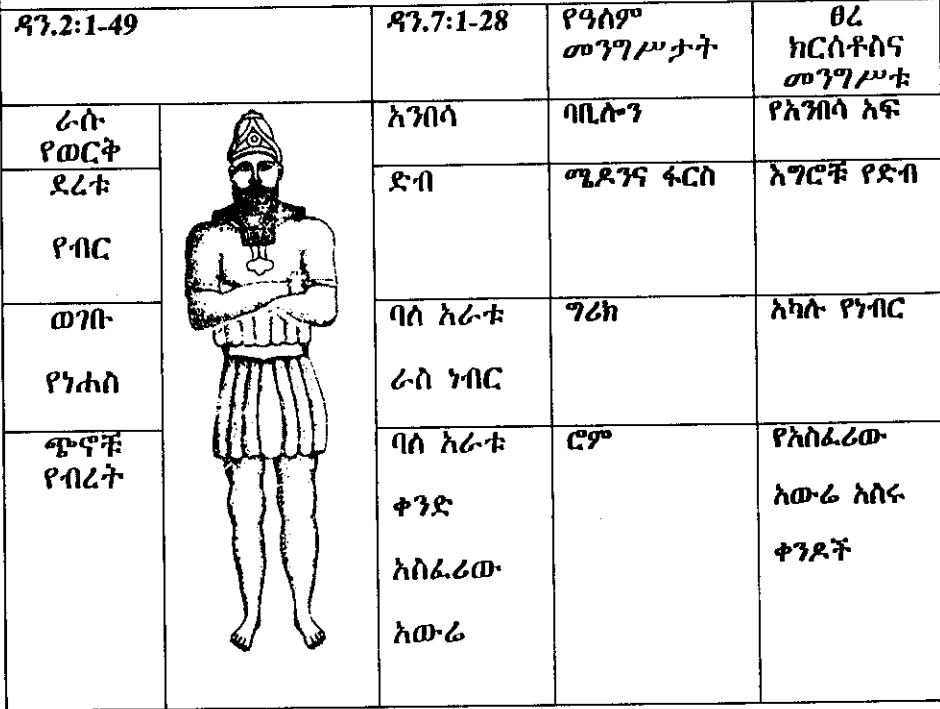 ዳን.2፡1-49
ዳን.7፡1-28
የዓለም
መንግሥታት
ፀረ
ክርስቶስና
መንግሥቱ
ራሱ
የወርቅ
አንበሳ
ባቢሎን
የአንበሳ አፍ
ደረቱ
የብር
ድብ
ሜዶንና ፋርስ
እግሮቹ የድብ
ወገቡ
የነሐስ
ባለ አራቱ
ራስ ነብር
ግሪክ
አካሉ የነብር
ጭኖቹ
የብረት
ባለ አራቱ
ቀንድ
አስፈሪው
አውሬ
ሮም
የአስፈሪው
አውሬ አስሩ
ቀንዶች